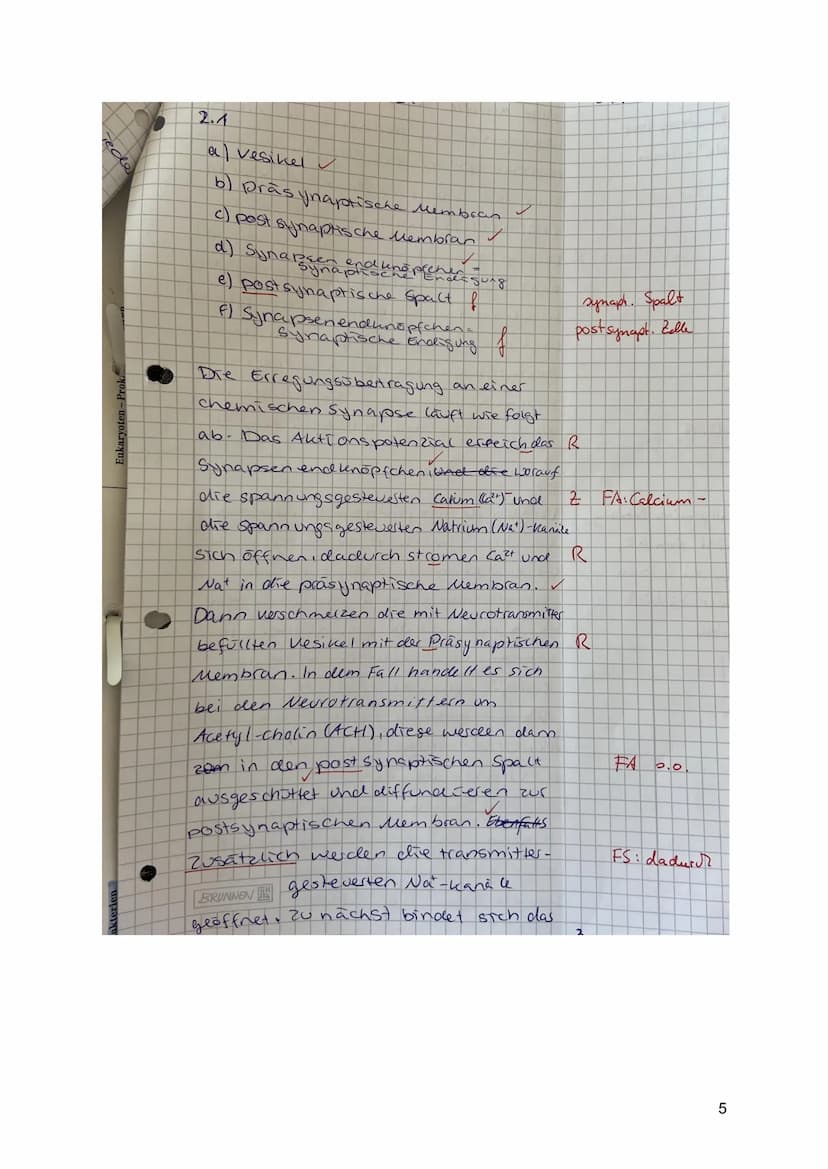 2.1
a) Vesikel ✓
b) präsynaptische Membran ✓
c) postsynaptische Membran ✓
d) Synapsenendknöpfchen = ✓
synaptische Endigung
e) postsynaptische Spalt f synapt. Spalt
f) Synapsenendknöpfchen = postsynapt. Zelle
synaptische Endigung f
Die Erregungsübertragung an einer
chemischen Synapse läuft wie folgt
ab. Das Aktionspotenzial erreich das R
Synapsenendknöpfchen, und die worauf ✓
die spannungsgesteuerten Calium (Ca²⁺)- und Z FA: Calcium-
die spannungsgesteuerten Natrium (Na⁺)-Kanäle
sich öffnen, dadurch stromen Ca²⁺ und R
Na⁺ in die präsynaptische Membran. ✓
Dann verschmelzen die mit Neurotransmitter
befüllten Vesikel mit der Präsynaptischen R
Membran. In dem Fall handelt es sich
bei den Neurotransmittern um
Acetyl-cholin (ACH), diese werden dann
zum in den postsynaptischen Spalt FA s.o.
ausgeschüttet und diffundieren zur ✓
postsynaptischen Membran. Ebenfalls ✓
Zusätzlich werden die transmitter- FS: dadurch
BRUNNEN gesteuerten Na⁺-Kanäle
geöffnet. Zunächst bindet sich das
Eukaryoten – Prok
akterien
5